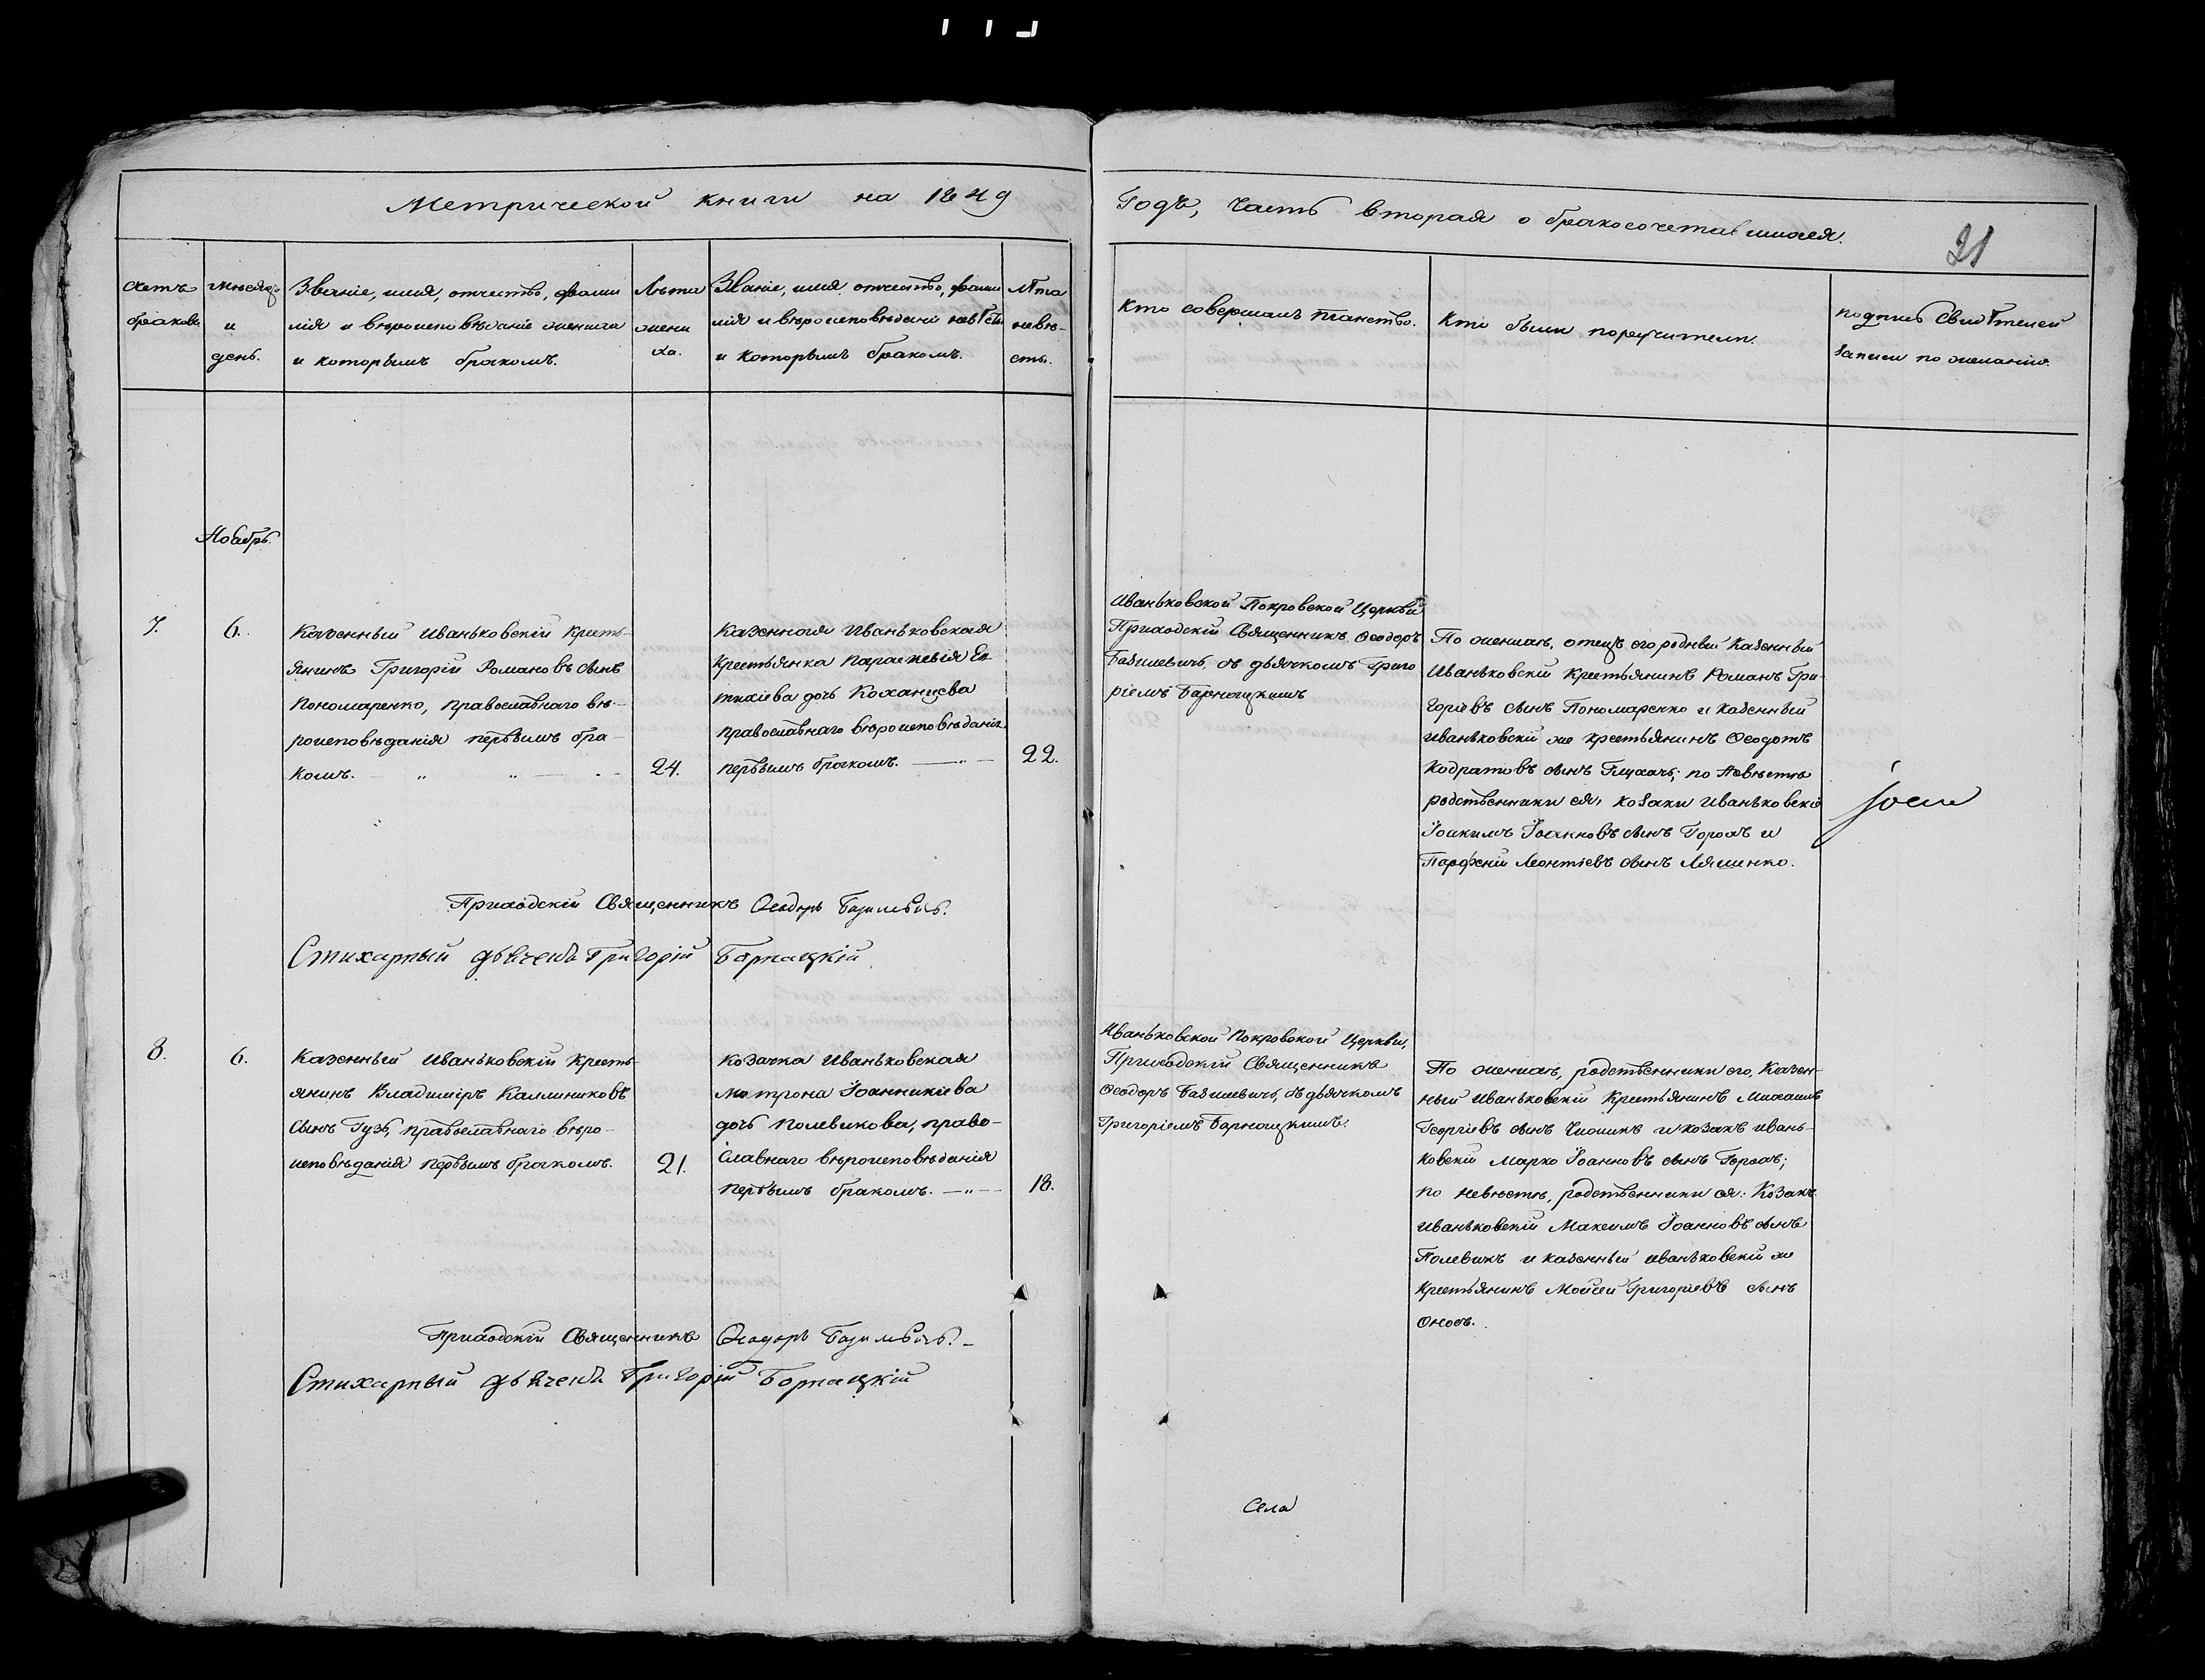 Метрической книги на 1849
Годъ, Часть вторая о бракосочетавшихся.
21
Счетъ браковъ
Мѣсяцъ и день.
Званіе, имя, отчество, фами
лія и вѣроисповѣданіе жениха
и которымъ бракомъ.
Лѣта
жени
ха.
Званіе, имя, отчество, фами
лія и вѣроисповѣданіе невѣсты
и которымъ бракомъ.
Лѣта
невѣ-
сты.
Кто совершалъ таинство.
Кто были поручители.
подпись свидѣтелей
записи по желанію.
Ноябрь.
7.
6.
Казенный Иваньковскій Кресть-
янинъ Григорій Романовъ сынъ
Пономаренко, православнаго вѣ-
роисповѣданія первымъ бра-
комъ.
24.
Казенная Иваньковская
Крестьянка Параскевія Ев
тихіева дочь Коханцева
православнаго вѣроисповѣданія
первымъ бракомъ.
22.
Иваньковской Покровской Церкви
Приходскій Священникъ Ѳеодоръ
Базилевичъ, съ дьячкомъ Григо
ріемъ Барнацкимъ
По женихѣ, отецъ его родный Казенный
Иваньковскій Крестьянинъ Романъ Гри-
горіевъ сынъ Пономаренко и Казенный
иваньковскій же крестьянинъ Ѳеодотъ
Кодратовъ сынъ; по Невѣстѣ
родственники ея, козаки иваньковскіе
Іоакимъ Іоанновъ сынъ Горохъ и
Парфеній Леонтіевъ сынъ Ляшенко.
Приходскій Священникъ Ѳеодоръ Базилевичъ.
Стихарный дьячекъ Григорій Борнацкій
8.
6.
Казенный Иваньковскій Кресть-
янинъ Владиміръ Каллиниковъ
Сынъ Гузь, православнаго вѣро-
исповѣданія первымъ бракомъ.
21.
Козачка Иваньковская
Матрона Іоанникіева
дочь Полевикова, право-
славнаго вѣроисповѣданія
первымъ бракомъ.
18.
Иваньковской Покровской Церкви,
Приходскій Священникъ
Ѳеодоръ Базилевичъ, съ дьячкомъ
Григоріемъ Барнацкимъ.
По женихѣ, родственники его, Казен-
ный иваньковскій Крестьянинъ Михаилъ
Георгіевъ сынъ Чижикъ и козакъ ивань-
ковскій Марко Іоанновъ сынъ Горохъ;
по невѣстѣ, родственники ея: Козакъ
иваньковскій Максимъ Іоанновъ сынъ
Полевикъ и казенный иваньковскій же
Крестьянинъ Мойсей Григоріевъ сынъ
Приходскій Священникъ Ѳеодоръ Базилевичъ.
Стихарный дьячекъ Григорій Борнацкій
Села